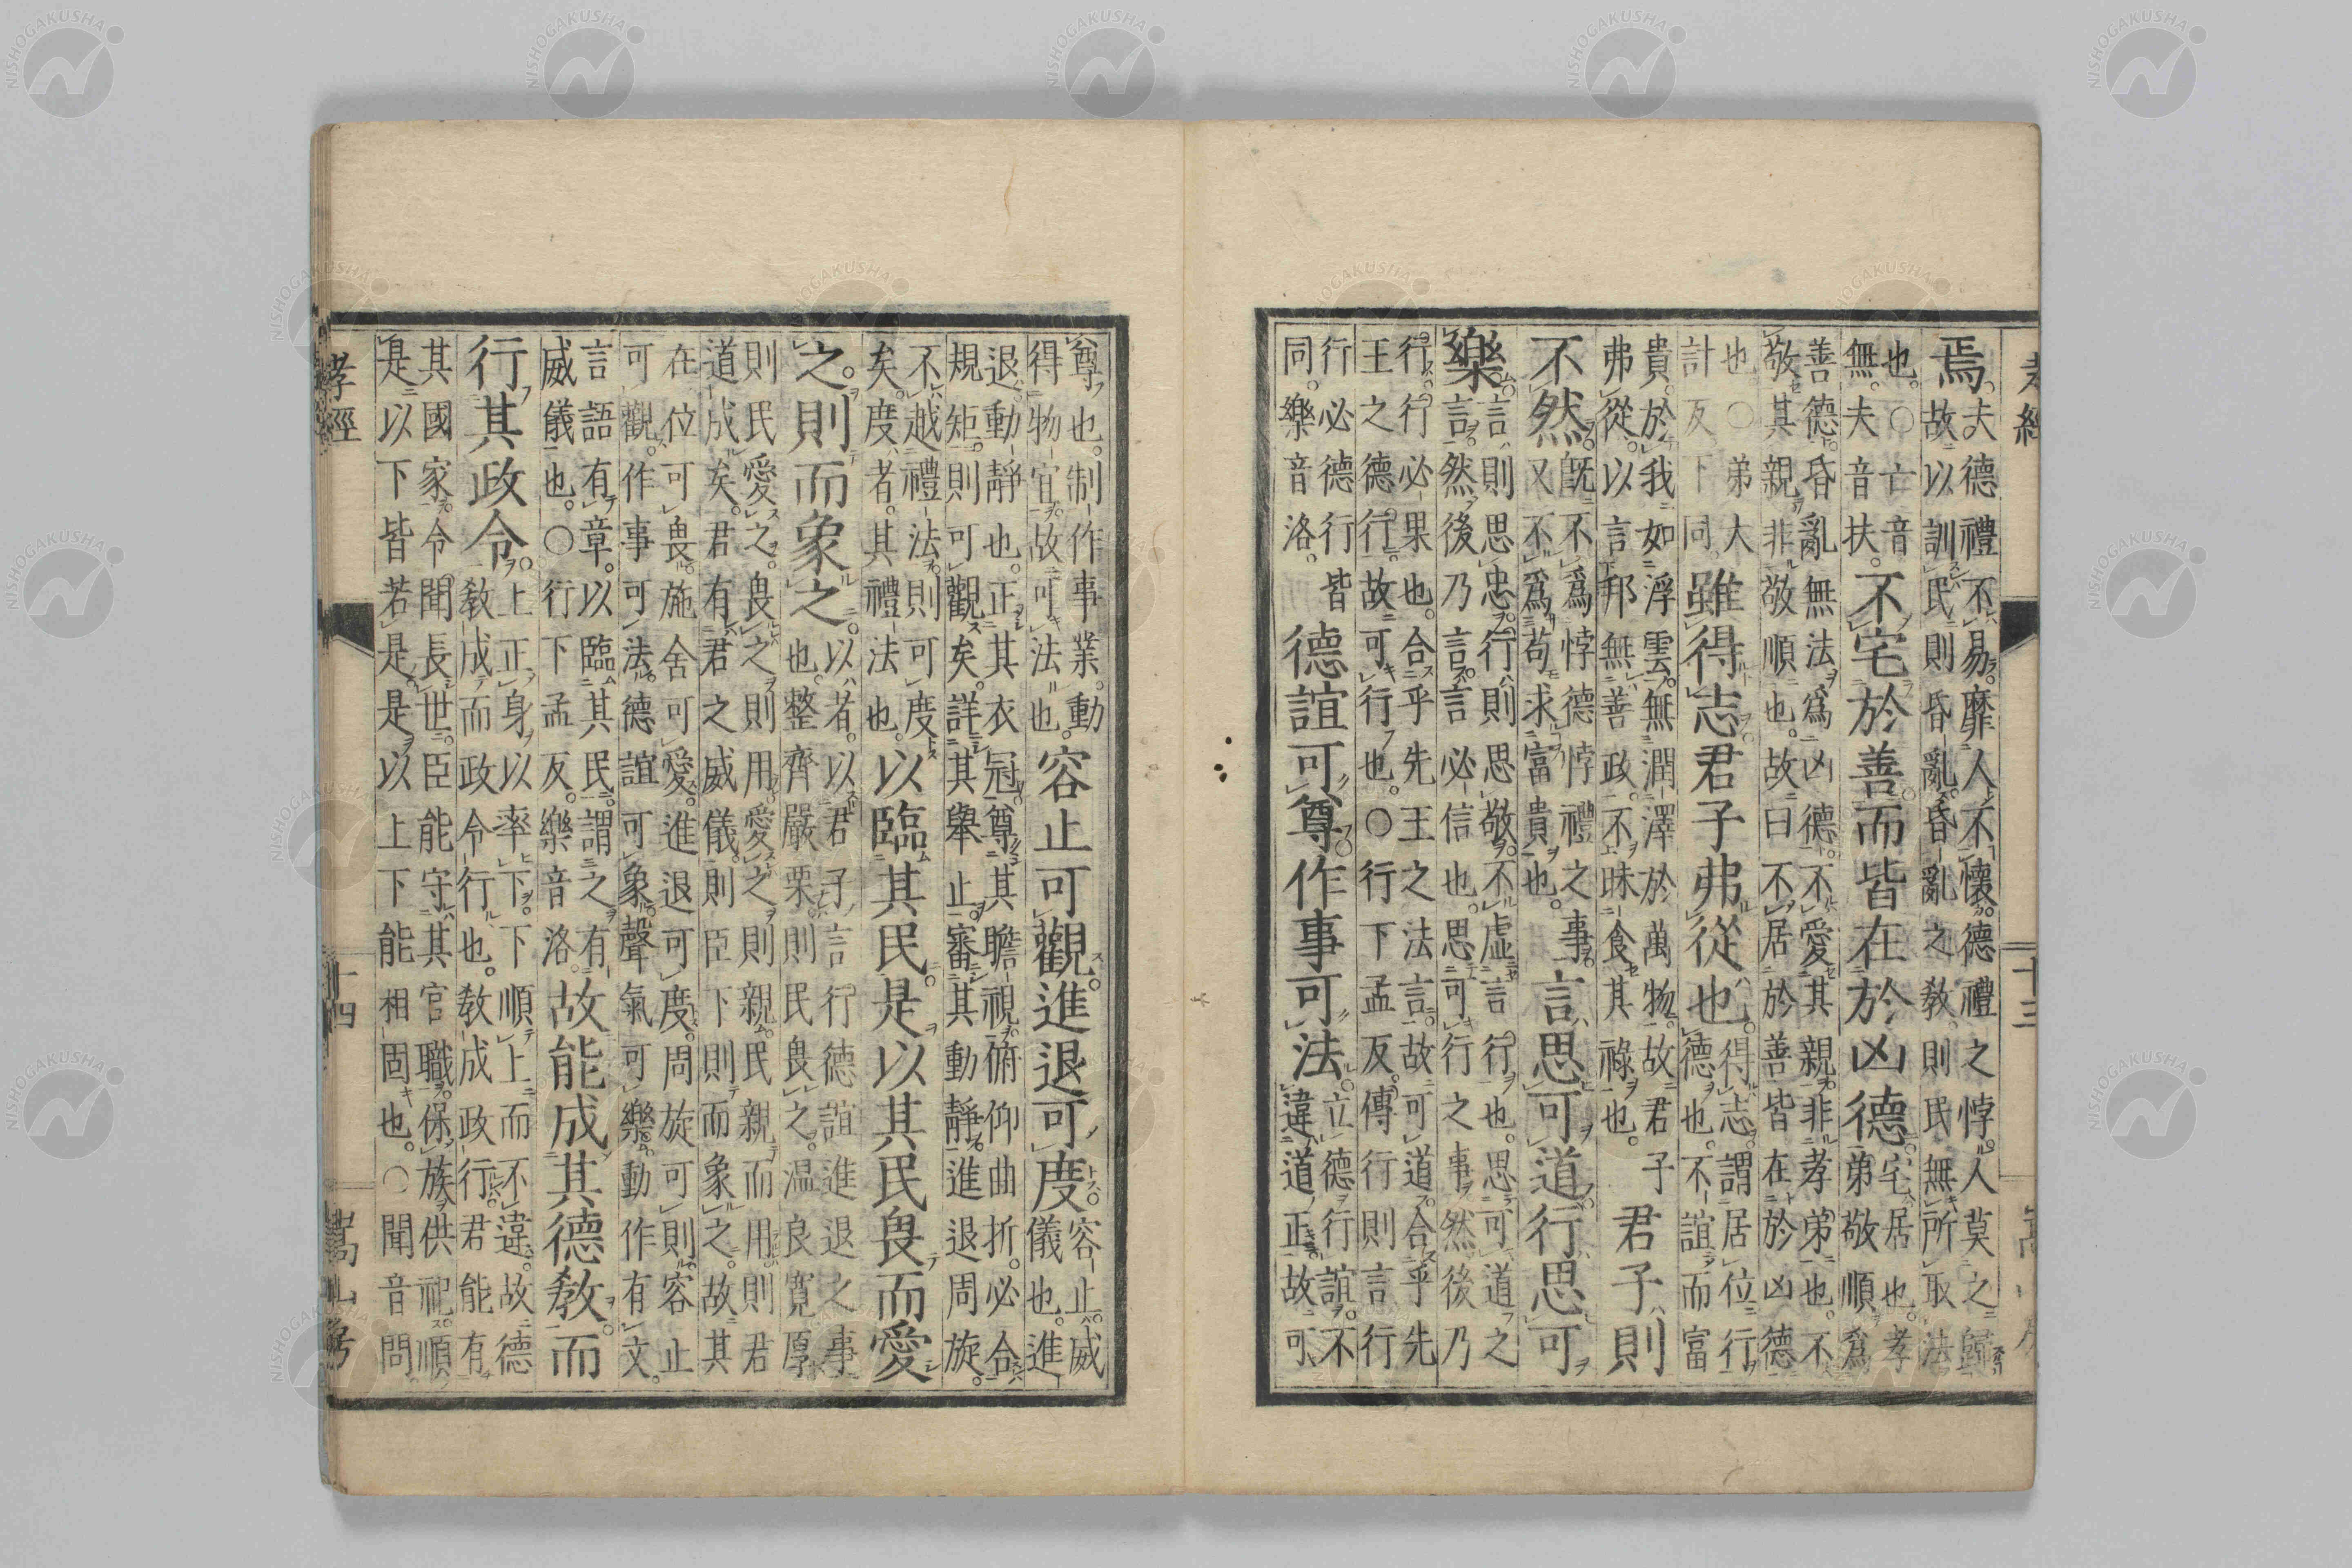 孝經 十三
焉夫德禮不易靡人不懷德禮之悖人莫之歸
故以訓民則昏亂昏亂之教則民無所取法
也○亡音
無夫音扶
不宅於善而皆在於凶德
宅居也孝
弟敬順爲
善德昏亂無法爲凶德不愛其親非孝弟也不
敬其親非敬順也故曰不居於善皆在於凶德
也○弟大
計反下同
雖得志君子弗從也
得志謂居位行
德也不誼而富
貴於我如浮雲無潤澤於萬物故君子
弗從以言邦無善政不昧食其祿也
君子則
不然
既不爲悖德悖禮之事
又不爲苟求富貴也
言思可道行思可
樂
言則思忠行則思敬不虛言行也思可道之
言然後乃言言必信也思可行之事然後乃
行行必果也合乎先王之法言故可道合乎先
王之德行故可行也○行下孟反傳行則言行
行必德行皆
同樂音洛
德誼可尊作事可法
立德行誼不
違道正故可
尊也制作事業動
得物宜故可法也
容止可觀進退可度
容止威
儀也進
退動靜也正其衣冠尊其瞻視俯仰曲折必合
規矩則可觀矣詳其舉止審其動靜進退周旋
不越禮法則可度
矣度者其禮法也
以臨其民是以其民畏而愛
之則而象之
以者以君子言行德誼進退之事
也整齊嚴栗則民畏之温良寬厚
則民愛之畏之則用愛之則親民親而用則君
道成矣君有君之威儀則臣下則而象之故其
在位可畏施舍可愛進退可度周旋可則容止
可觀作事可法德誼可象聲氣可樂動作有文
言語有章以臨其民謂之有
威儀也○行下孟反樂音洛
故能成其德教而
行其政令
上正身以率下下順上而不違故德
教成而政令行也教成政行君能有
其國家令聞長世臣能守其官職保族供祀順
是以下皆若是是以上下能相固也○聞音問
孝經 十四 嵩山房
NISHOGAKUSHA